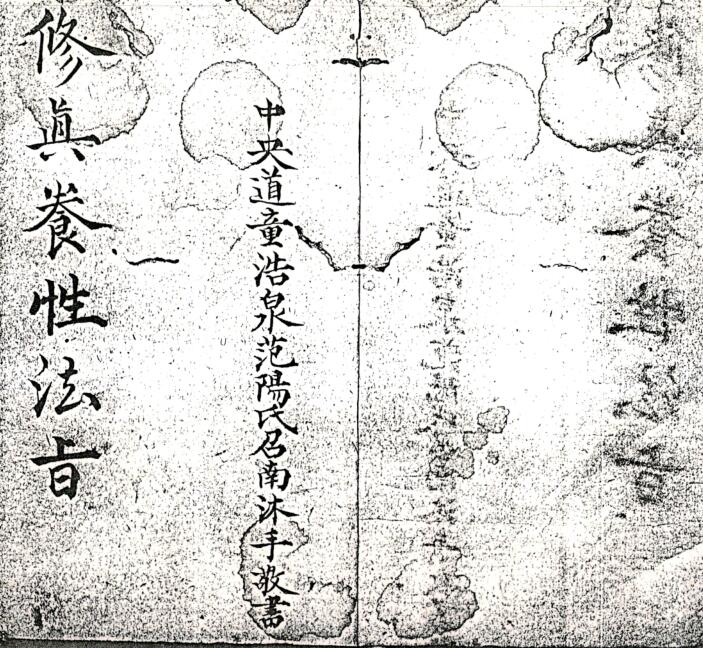 中央道童浩泉范陽氏召南沐手敬書
修眞養性法旨